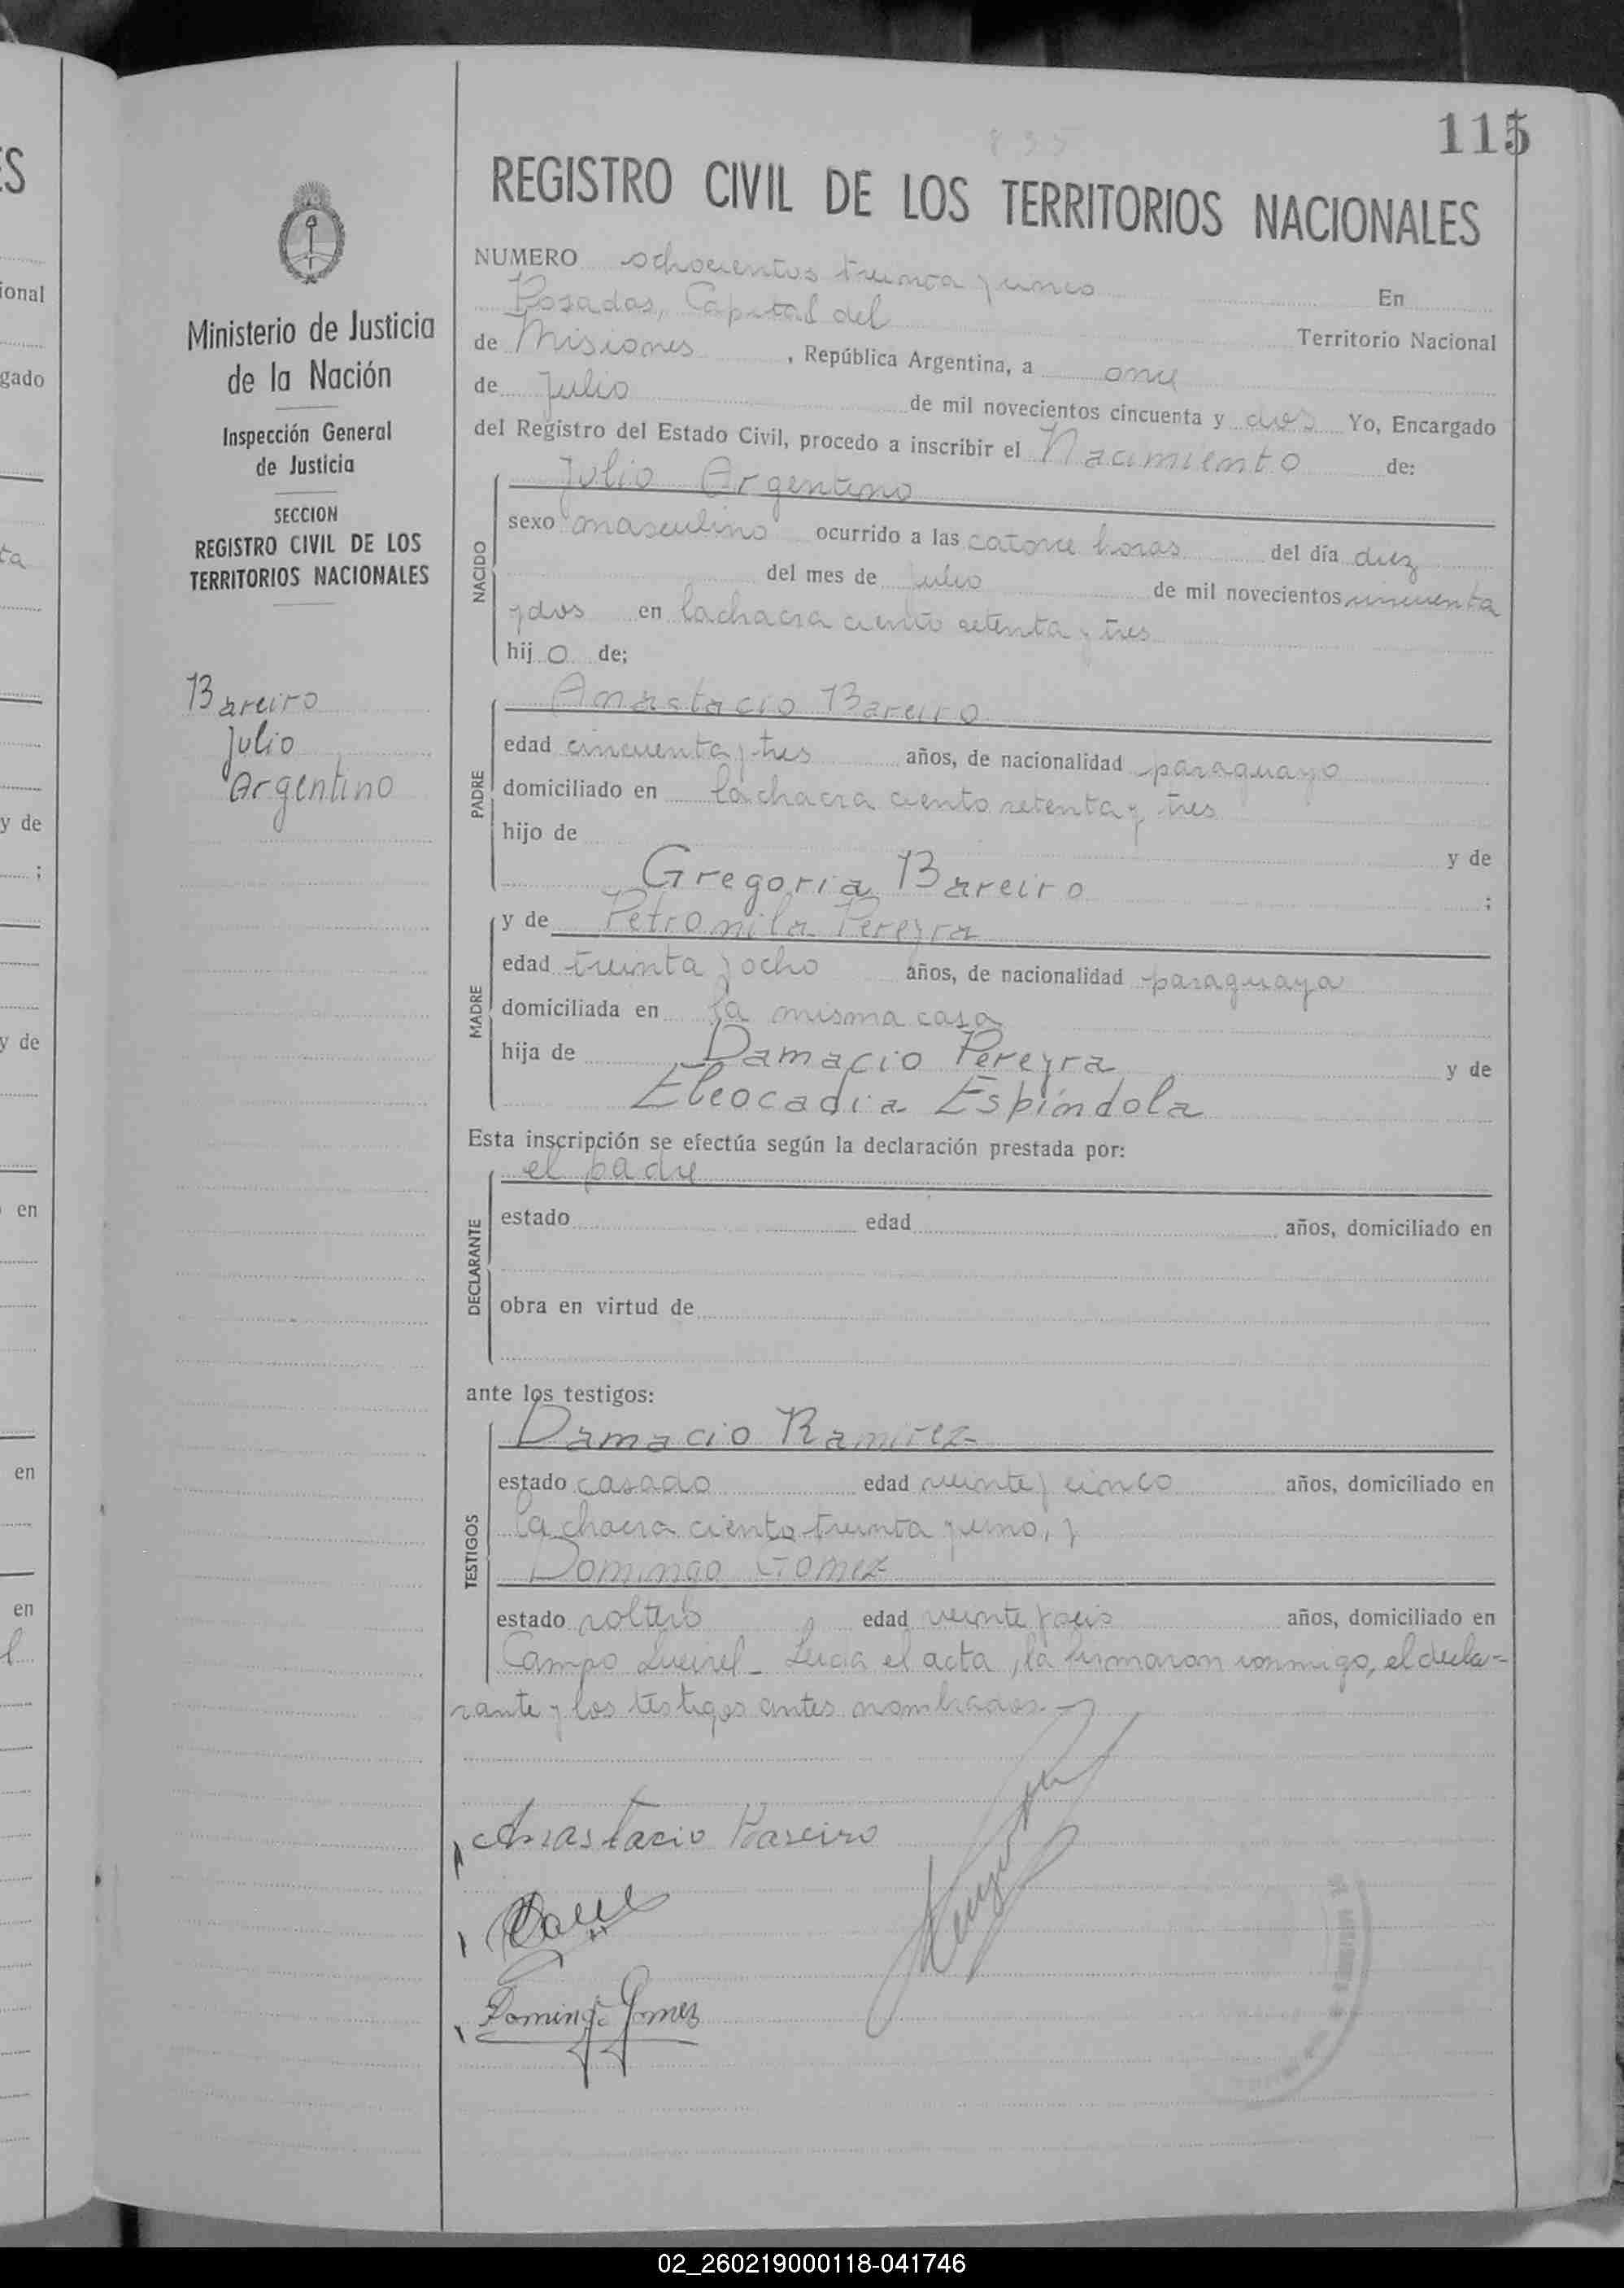 115
835
REGISTRO CIVIL DE LOS TERRITORIOS NACIONALES
Ministerio de Justicia
de la Nación
Inspección General
de Justicia
SECCION
REGISTRO CIVIL DE LOS
TERRITORIOS NACIONALES
Bareiro
Julio
Argentino
NUMERO ochocientos treinta y cinco En
Posadas, Capital del Territorio Nacional
de Misiones, República Argentina, a once
de Julio de mil novecientos cincuenta y dos Yo, Encargado
del Registro del Estado Civil, procedo a inscribir el Nacimiento de:
NACIDO
Julio Argentino
sexo masculino ocurrido a las catorce horas del día diez
del mes de julio de mil novecientos cincuenta
y dos en la chacra ciento setenta y tres
hij o de;
PADRE
Anastacio Bareiro
edad cincuenta y tres años, de nacionalidad paraguayo
domiciliado en la chacra ciento setenta y tres
hijo de y de
Gregoria Bareiro ;
MADRE
y de Petronila Pereyra
edad treinta y ocho años, de nacionalidad paraguaya
domiciliada en la misma casa
hija de Damacio Pereyra y de
Eleocadia Espíndola
Esta inscripción se efectúa según la declaración prestada por:
DECLARANTE
el padre
estado edad años, domiciliado en
obra en virtud de
ante los testigos:
TESTIGOS
Damacio Ramirez
estado casado edad veinte y cinco años, domiciliado en
la chacra ciento treinta y uno, y
Domingo Gomez
estado soltero edad veinte y seis años, domiciliado en
Campo . Leida el acta, la firmaron conmigo, el decla-
rante y los testigos antes nombrados.-
Anastacio Bareiro
Domingo Gomes
02_260219000118-041746